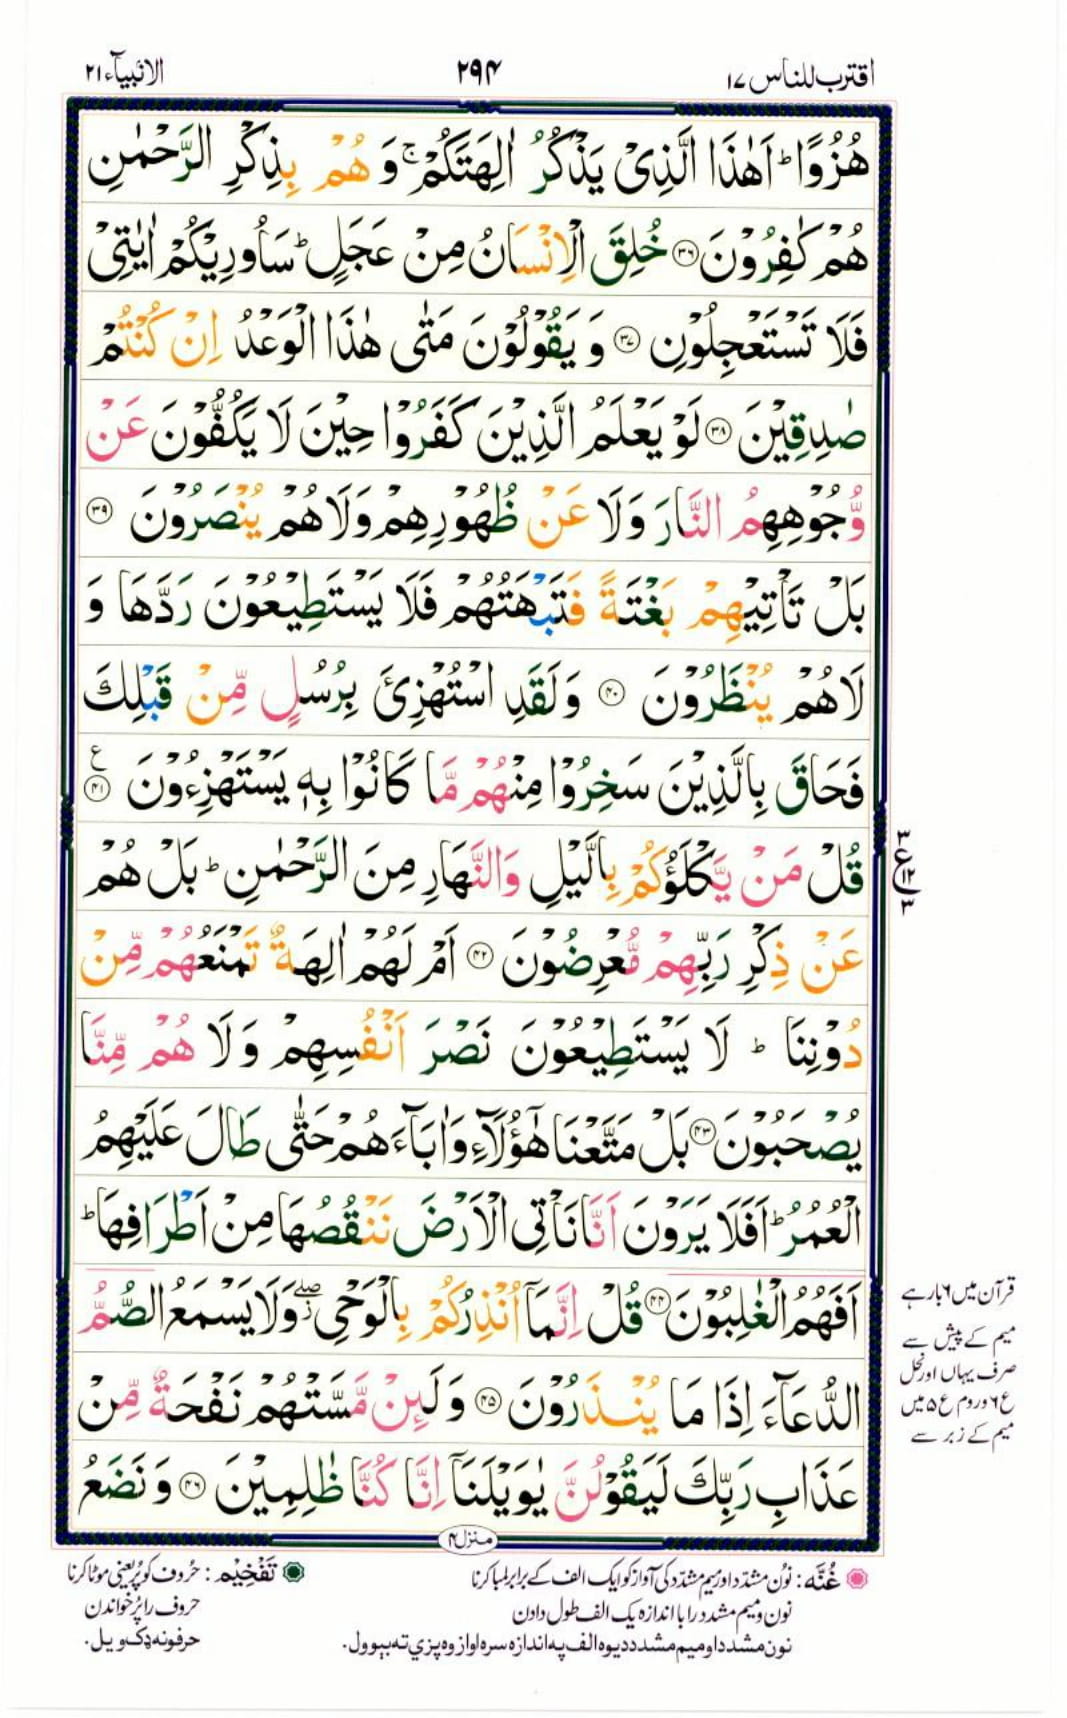 اقترب للناس ١٧
٢٩٤
الانبیآء ٢١
هُزُوًا ؕ اَهٰذَا الَّذِیْ یَذْكُرُ اٰلِهَتَكُمْ ۚ وَ هُمْ بِذِكْرِ الرَّحْمٰنِ
هُمْ كٰفِرُوْنَ ﴿۳۶﴾ خُلِقَ الْاِنْسَانُ مِنْ عَجَلٍ ؕ سَاُورِیْكُمْ اٰیٰتِیْ
فَلَا تَسْتَعْجِلُوْنِ ﴿۳۷﴾ وَ یَقُوْلُوْنَ مَتٰی هٰذَا الْوَعْدُ اِنْ كُنْتُمْ
صٰدِقِیْنَ ﴿۳۸﴾ لَوْ یَعْلَمُ الَّذِیْنَ كَفَرُوْا حِیْنَ لَا یَكُفُّوْنَ عَنْ
وُّجُوْهِهِمُ النَّارَ وَلَا عَنْ ظُهُوْرِهِمْ وَلَا هُمْ یُنْصَرُوْنَ ﴿۳۹﴾
بَلْ تَاْتِیْهِمْ بَغْتَةً فَتَبْهَتُهُمْ فَلَا یَسْتَطِیْعُوْنَ رَدَّهَا وَ
لَا هُمْ یُنْظَرُوْنَ ﴿۴۰﴾ وَلَقَدِ اسْتُهْزِئَ بِرُسُلٍ مِّنْ قَبْلِكَ
فَحَاقَ بِالَّذِیْنَ سَخِرُوْا مِنْهُمْ مَّا كَانُوْا بِهٖ یَسْتَهْزِءُوْنَ ﴿۴۱﴾ ع
قُلْ مَنْ یَّكْلَؤُكُمْ بِالَّیْلِ وَالنَّهَارِ مِنَ الرَّحْمٰنِ ؕ بَلْ هُمْ
٣ ع ١٢ ٣
عَنْ ذِكْرِ رَبِّهِمْ مُّعْرِضُوْنَ ﴿۴۲﴾ اَمْ لَهُمْ اٰلِهَةٌ تَمْنَعُهُمْ مِّنْ
دُوْنِنَا ؕ لَا یَسْتَطِیْعُوْنَ نَصْرَ اَنْفُسِهِمْ وَ لَا هُمْ مِّنَّا
یُصْحَبُوْنَ ﴿۴۳﴾ بَلْ مَتَّعْنَا هٰۤؤُلَآءِ وَ اٰبَآءَهُمْ حَتّٰی طَالَ عَلَیْهِمُ
الْعُمُرُ ؕ اَفَلَا یَرَوْنَ اَنَّا نَاْتِی الْاَرْضَ نَنْقُصُهَا مِنْ اَطْرَافِهَا ؕ
اَفَهُمُ الْغٰلِبُوْنَ ﴿۴۴﴾ قُلْ اِنَّمَاۤ اُنْذِرُكُمْ بِالْوَحْیِ ۖؗ وَلَا یَسْمَعُ الصُّمُّ
الدُّعَآءَ اِذَا مَا یُنْذَرُوْنَ ﴿۴۵﴾ وَ لَئِنْ مَّسَّتْهُمْ نَفْحَةٌ مِّنْ
عَذَابِ رَبِّكَ لَیَقُوْلُنَّ یٰوَیْلَنَاۤ اِنَّا كُنَّا ظٰلِمِیْنَ ﴿۴۶﴾ وَ نَضَعُ
قرآن میں ٦ بار ہے
میم کے پیش سے
صرف یہاں اور نحل
ع ٦ و روم ع ٥ میں
میم کے زبر سے
منزل ۴
غُنَّه : نُون مشدّد اور میم مشدّد کی آواز کو ایک الف کے برابر لمبا کرنا
نون و میم مشدد را با اندازه یک الف طول دادن
نون مشدد او میم مشدد دیوه الف په اندازه سره اواز وه پزې ته بیوول.
تَفْخِیْم : حُروف کو پُر یعنی موٹا کرنا
حروف را پُر خواندن
حرفونه ډک ویل.